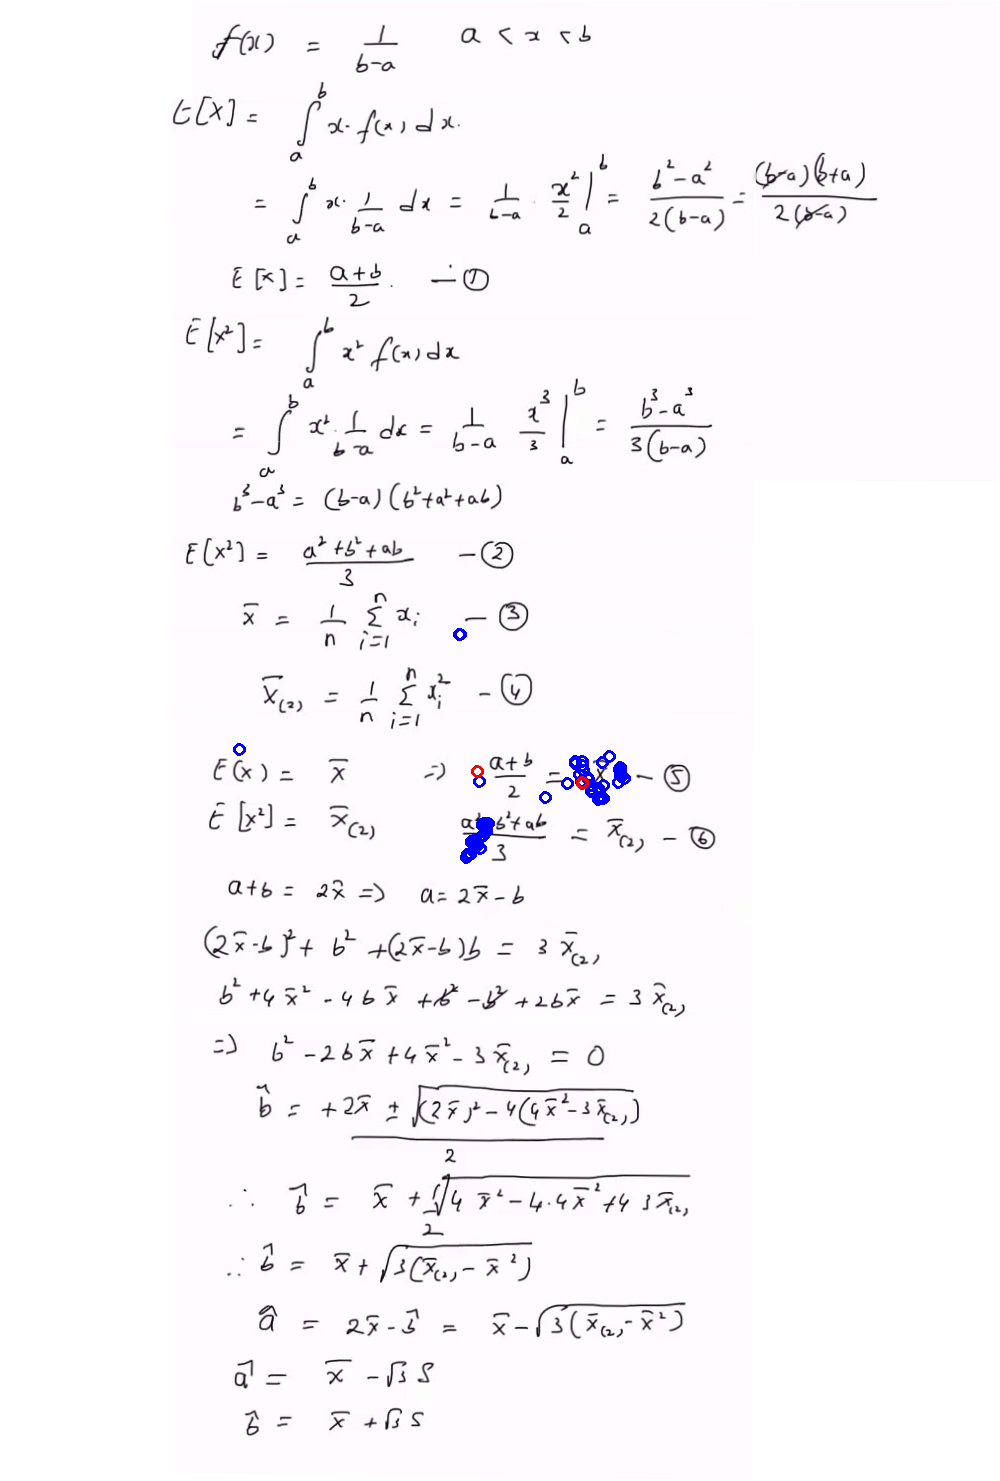 f(x) = 1/(b-a)   a < x < b
E[X] = ∫_a^b x. f(x) dx.
= ∫_a^b x. 1/(b-a) dx = 1/(b-a) . x²/2 |_a^b = (b²-a²)/(2(b-a)) = (b-a)(b+a)/(2(b-a))
E[x] = (a+b)/2 . — ①
E[x²] = ∫_a^b x² f(x) dx
= ∫_a^b x². 1/(b-a) dx = 1/(b-a) x³/3 |_a^b = (b³-a³)/(3(b-a))
b³-a³ = (b-a)(b²+a²+ab)
E[x²] = (a²+b²+ab)/3 — ②
x̄ = 1/n Σ_{i=1}^n x_i — ③
X̄_(2) = 1/n Σ_{i=1}^n x_i² — ④
E(x) = x̄ => (a+b)/2 = x̄ — ⑤
E[x²] = x̄_(2)   (a²+b²+ab)/3 = x̄_(2) — ⑥
a+b = 2x̄ => a = 2x̄-b
(2x̄-b)² + b² + (2x̄-b)b = 3x̄_(2)
b² + 4x̄² - 4bx̄ + b² - b² + 2bx̄ = 3x̄_(2)
=> b² - 2bx̄ + 4x̄² - 3x̄_(2) = 0
b̂ = (+2x̄ ± √((2x̄)² - 4(4x̄² - 3x̄_(2))))/2
∴ b̂ = x̄ + √(4x̄² - 4.4x̄² + 4 3x̄_(2))/2
∴ b̂ = x̄ + √(3(x̄_(2) - x̄²))
â = 2x̄ - b̂ = x̄ - √(3(x̄_(2) - x̄²))
â = x̄ - √3 S
b̂ = x̄ + √3 S